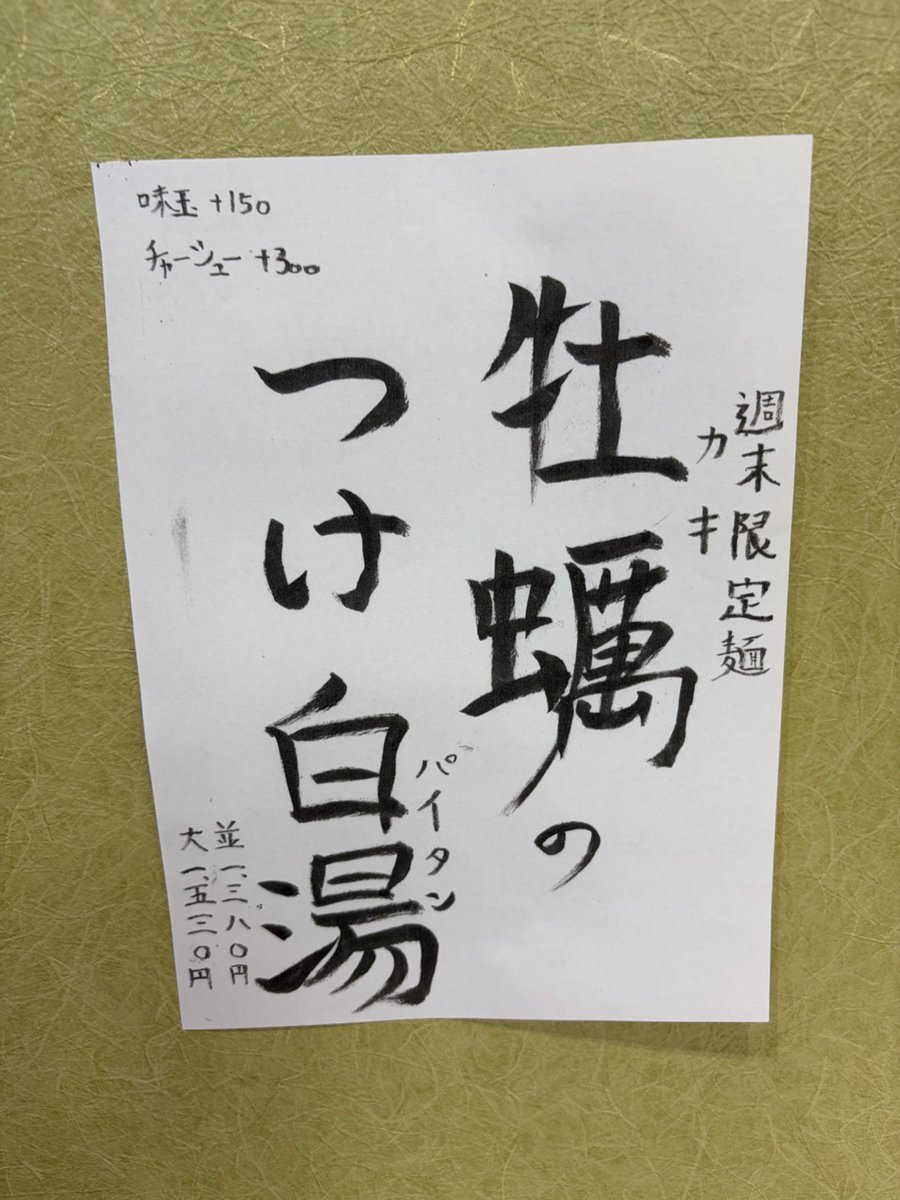 味玉 +150
チャーシュー +300
週末限定麺
カキ
牡蠣の
パイタン
つけ白湯
並 一、三八〇円
大 一、五三〇円